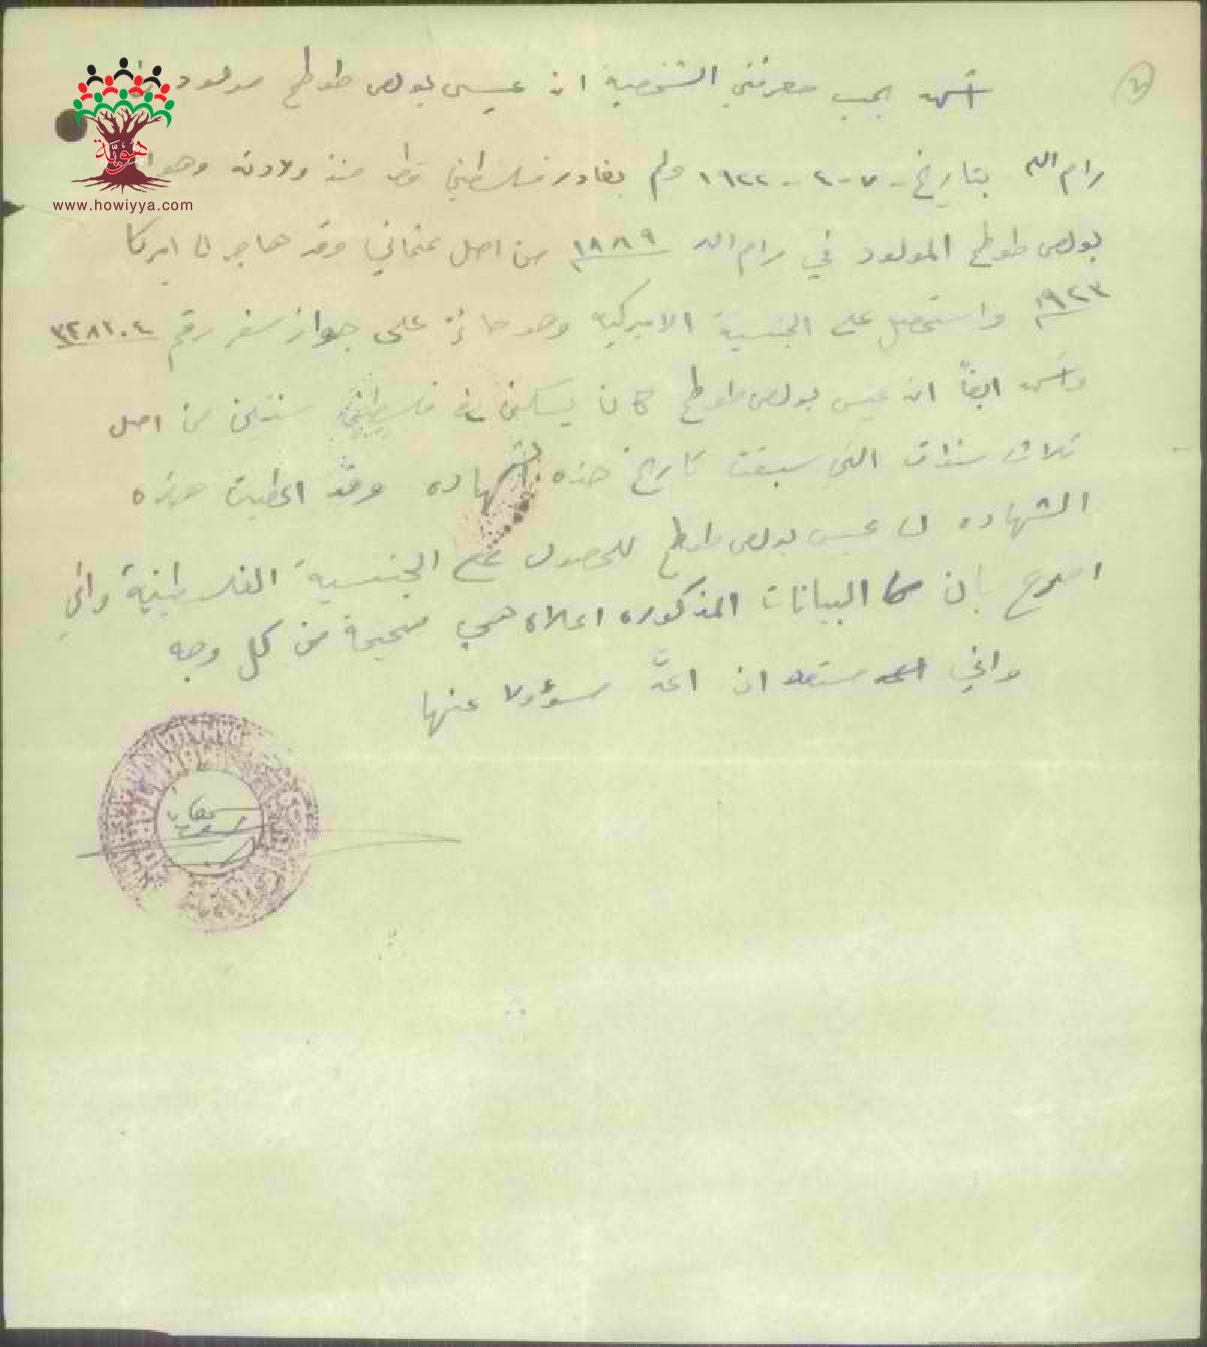 اشهد بحسب معرفتي الشخصية ان عيسى بولص طوطح مولود
رام الله بتاريخ - ٧ - ٢ - ١٩٢٢ ولم يغادر فلسطين قط منذ ولادته وهو
بولص طوطح المولود في رام الله ١٨٨٩ من اصل عثماني وقد هاجر الى اميركا
١٩٢٣ واستحصل على الجنسية الاميركية وهو حائز على جواز سفر رقم ٣٢٨١٠٤
واشهد ايضاً ان عيسى بولص طوطح كان يسكن في فلسطين سنتين من اصل
ثلاث سنوات التي سبقت تاريخ هذه الشهاده وقد اعطيت هذه
الشهاده لـ عيسى بولص طوطح للحصول على الجنسية الفلسطينية واني
اصرح بان البيانات المذكوره اعلاه هي صحيحة من كل وجه
واني مستعد ان اعدّ مسؤولا عنها
هوية
www.howiyya.com